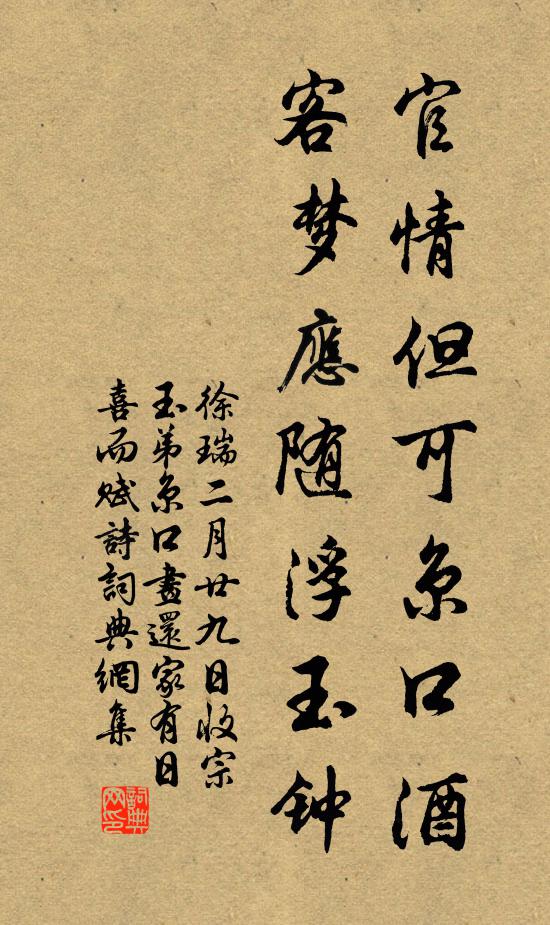 宦情但可京口酒
客梦應随浮玉钟
徐瑞二月廿九日收宗
玉弟京口書還家有日
喜而赋詩詞典網集
詞典网印